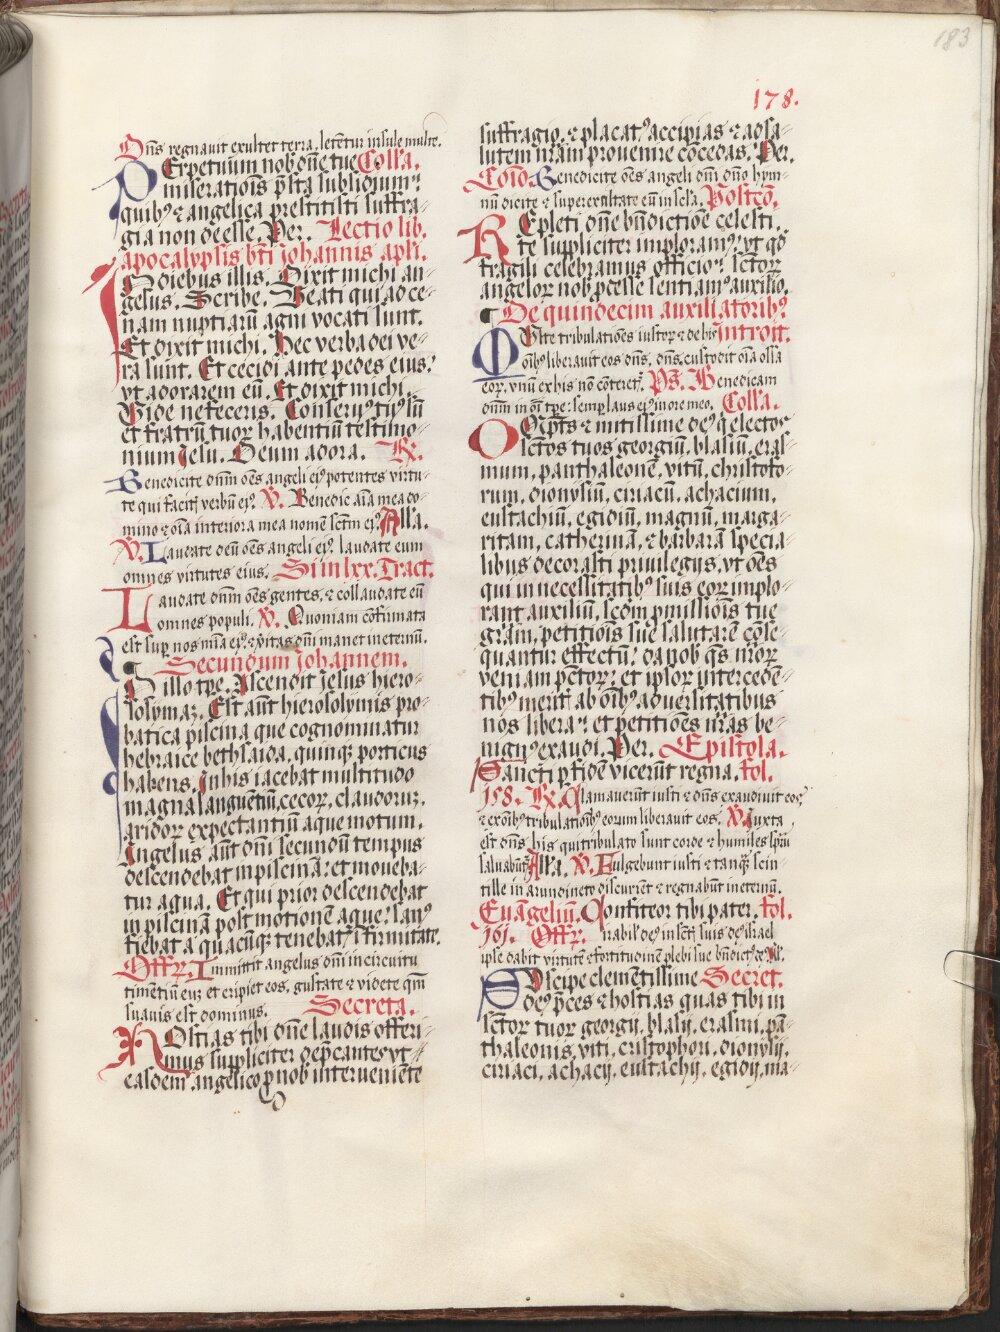 183
178.
Dñs regnauit exultet terra, letẽtur insule multe.
PErpetuum nob dñe tue Coll'a.
miseratiõis p̃sta subsidium:
quibꝰ ⁊ angelica prestitisti suffra-
gia non deesse. Per. Lectio lib.
apocalypsis bti Johannis apli.
IN diebus illis. Dixit michi an-
gelus. Scribe. Beati qui ad ce-
nam nuptiarũ agni vocati sunt.
Et dixit michi. Hec verba dei ve-
ra sunt. Et cecidi ante pedes eius:
vt adorarem eũ. Et dixit michi.
Vide ne feceris. Conseruꝰ tuꝰ sũ
et fratrũ tuoꝝ habentiũ testimo-
nium Jesu. Deum adora. R̃.
Benedicite dñm oẽs angeli eiꝰ potentes virtu-
te qui facitꝭ verbũ eiꝰ. V̄. Benedic aĩa mea do-
mino ⁊ oĩa interiora mea nomẽ sctm eiꝰ. All'a.
V̄. Laudate deũ oẽs angeli eiꝰ laudate eum
omnes virtutes eius. Si in lxx. Tract.
Laudate dñm oẽs gentes, ⁊ collaudate eũ
omnes populi. V̄. Quoniam cõfirmata
est suꝑ nos mĩa eiꝰ: ⁊ vĩtas dñi manet in eternũ.
Secundum Johannem.
IN illo tp̃e. Ascendit Jesus hiero-
solymaz. Est aũt hierosolymis pro-
batica piscina que cognominatur
hebraice bethsaida, quinqꝫ porticus
habens. In his iacebat multitudo
magna languentiũ, cecoꝝ, claudoruꝫ,
aridoꝝ expectantiũ aque motum.
Angelus aũt dñi secundũ tempus
descendebat in piscinã: et moueba-
tur aqua. Et qui prior descendebat
in piscinã post motionẽ aque: sanꝰ
fiebat a quacũqꝫ tenebatꝭ ĩfirmitate.
Offꝝ. Inmittit angelus dñi in circuitu
timentiũ euꝫ et eripiet eos, gustate ⁊ videte qm̃
suauis est dominus. Secreta.
HOstias tibi dñe laudis offeri-
mus suppliciter dep̃cantes vt
easdem angelico ꝓ nob interueniẽte
suffragio, ⁊ placatꝰ accipias ⁊ ad sa-
lutem nr̃am prouenire cõcedas. Per.
Cõio. Benedicite oẽs angeli dñi dño hym-
nũ dicite ⁊ superexaltate eũ in scl'a. Postcõ.
REpleti dñe bñdictiõe celesti
te suppliciter imploramꝰ: vt qd
fragili celebramus officio: sctoꝝ
angeloꝝ nob ꝓdesse sentiamꝰ auxilio.
De quindecim auxiliatoribꝰ
MUlte tribulatiões iustoꝝ ⁊ de his Introit.
oĩbꝰ liberauit eos dñs, dñs custodit oĩa ossa
eoꝝ, vnũ ex his nõ cõteretꝭ. Ps. Benedicam
dñm in oĩ tp̃e: semp laus eiꝰ in ore meo. Coll'a.
OMĩp̃ts ⁊ mitissime deꝰ q electos
sctos tuos georgiũ, blasiũ, eras-
mum, panthaleonẽ, vitũ, christofo-
rum, dionysiũ, ciriacũ, achacium,
eustachiũ, egidiũ, magnũ, marga-
ritam, catherinã, ⁊ barbarã specia-
libus decorasti priuilegijs, vt oẽs
qui in necessitatibꝰ suis eoꝝ implo-
rant auxiliũ, scdm p̃missiõis tue
gr̃am, petitiõis sue salutarẽ cõse-
quantur effectũ: da nob q̃s nr̃oꝝ
veniam pctoꝝ: et ipsoꝝ intercedẽ-
tibꝰ meritꝭ ab oĩbꝰ aduersitatibus
nos libera: et petitiões nr̃as be-
nignꝰ exaudi. Per. Epistola.
Sancti p fidẽ vicerũt regna. fol.
158. R̃. Clamauerũt iusti ⁊ dñs exaudiuit eos
⁊ ex oĩbꝰ tribulatiõibꝰ eorum liberauit eos. V̄. Juxta
est dñs his qui tribulato sunt corde ⁊ humiles sp̃u
saluabit. All'a. V̄. Fulgebunt iusti ⁊ tanqꝫ scin-
tille in arundineto discurrẽt ⁊ regnabũt in eternũ.
Euãgeliũ. Confiteor tibi pater. fol.
161. Offꝝ. Mirabilꝭ deꝰ in sctꝭ suis deꝰ israel
ipse dabit virtutẽ ⁊ fortitudinẽ plebi sue bñdictꝰ deꝰ. All.
SUscipe clementissime Secret.
deꝰ p̃ces ⁊ hostias quas tibi in
sctoꝝ tuoꝝ georgij, blasij, erasmi, pã-
thaleonis, viti, cristophori, dionysij,
ciriaci, achacij, eustachij, egidij, ma-